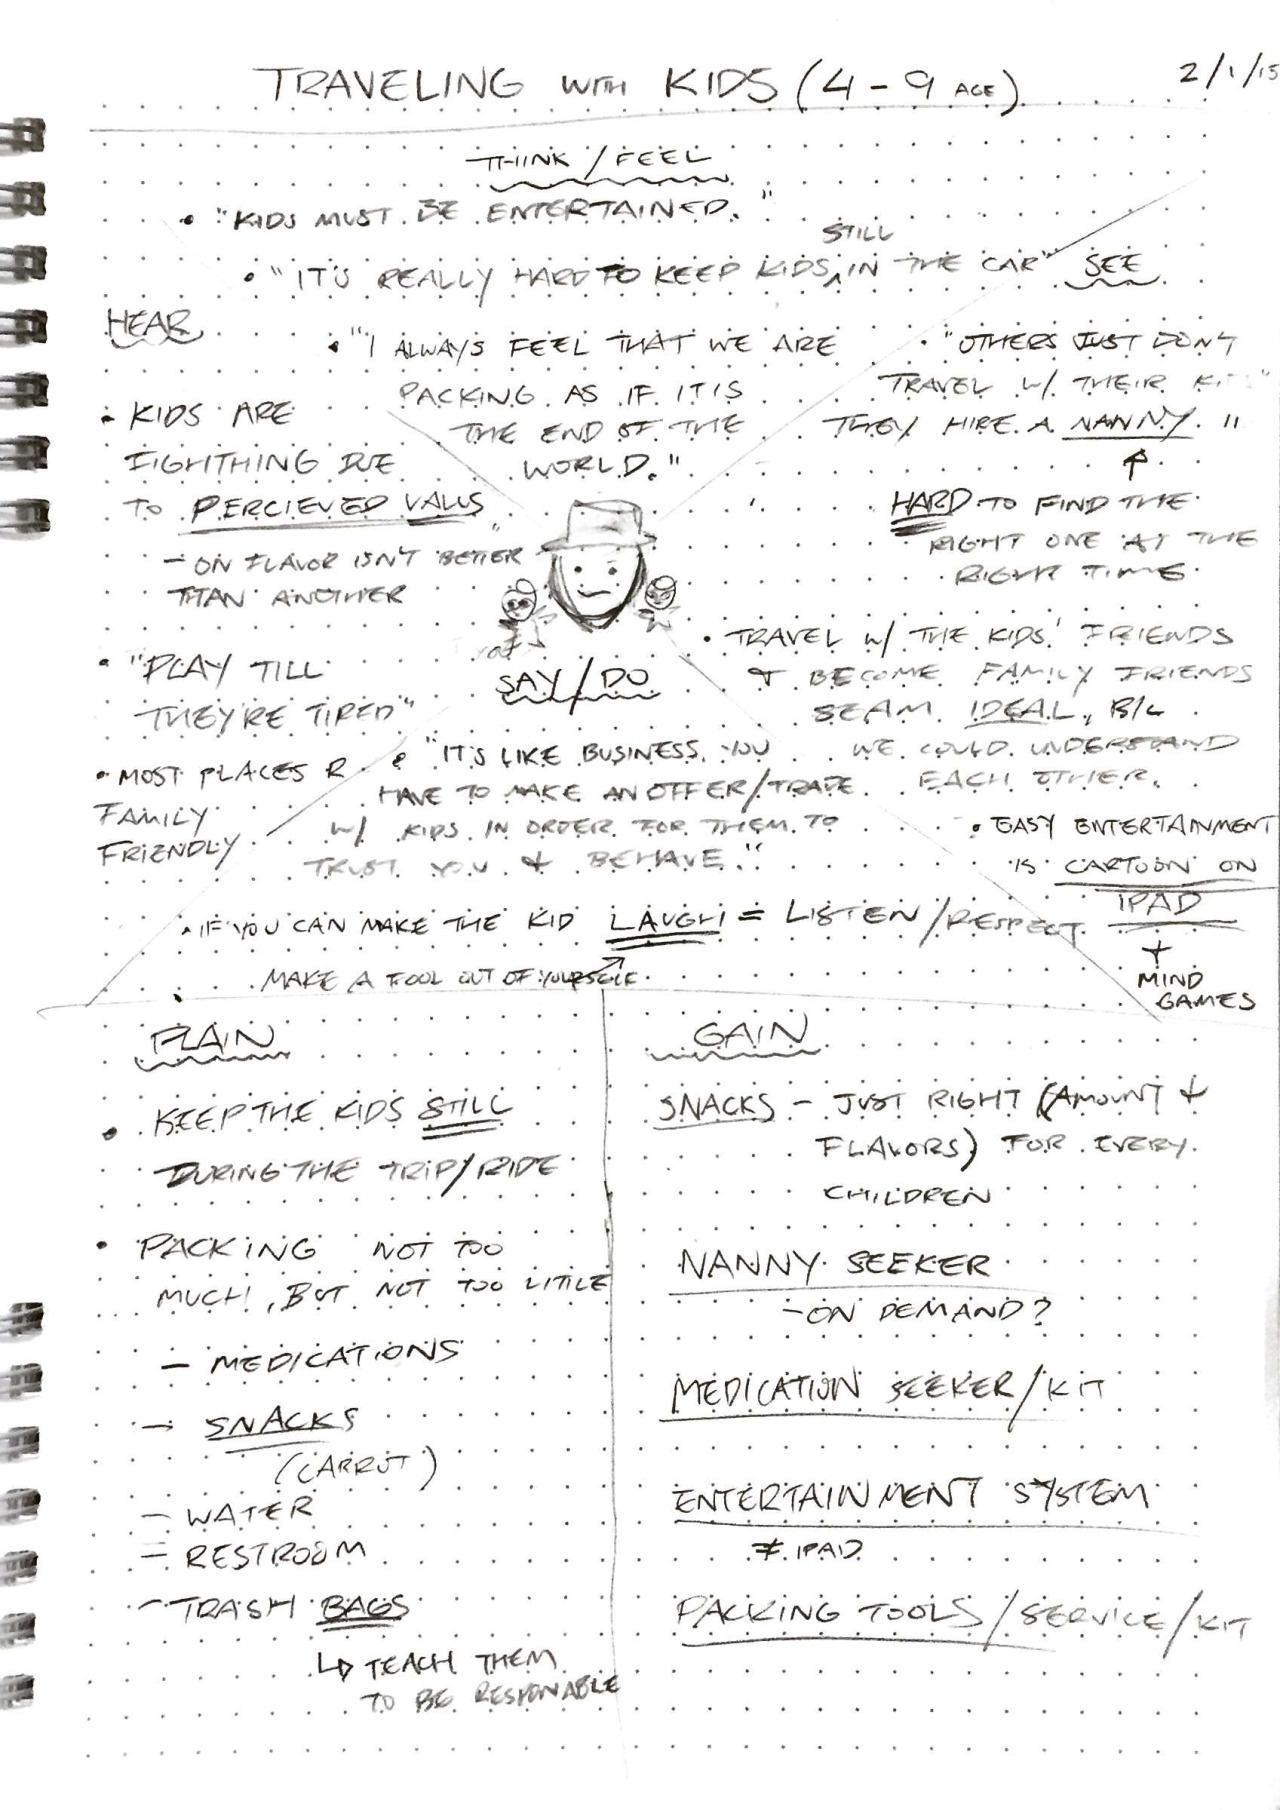 TRAVELING WITH KIDS (4-9 AGE)
2/1/15
THINK/FEEL
• "KIDS MUST BE ENTERTAINED."
STILL
• "IT'S REALLY HARD TO KEEP KIDS ^ IN THE CAR"
• "I ALWAYS FEEL THAT WE ARE
PACKING AS IF IT IS
THE END OF THE
WORLD."
SEE
• "OTHERS JUST DON'T
TRAVEL W/ THEIR KIDS"
THEY HIRE A NANNY."
↑
HARD TO FIND THE
RIGHT ONE AT THE
RIGHT TIME
• TRAVEL W/ THE KIDS' FRIENDS
+ BECOME FAMILY FRIENDS
SEAM IDEAL, B/C
WE COULD UNDERSTAND
EACH OTHER.
• EASY ENTERTAINMENT
IS CARTOON ON
IPAD
+
MIND
GAMES
HEAR
• KIDS ARE
FIGHTHING DUE
TO PERCIEVED VALUS
- ON FLAVOR ISN'T BETTER
THAN ANOTHER
• "PLAY TILL
THEY'RE TIRED"
• MOST PLACES R
FAMILY
FRIENDLY
SAY/DO
• "IT'S LIKE BUSINESS. YOU
HAVE TO MAKE AN OFFER/TRADE
W/ KIDS IN ORDER FOR THEM TO
TRUST YOU + BEHAVE."
• IF YOU CAN MAKE THE KID LAUGH = LISTEN/RESPECT
MAKE A FOOL OUT OF YOURSELF
PLAIN
• KEEP THE KIDS STILL
DURING THE TRIP/RIDE
• PACKING NOT TOO
MUCH, BUT NOT TOO LITTLE
- MEDICATIONS
- SNACKS
(CARROT)
- WATER
- RESTROOM
- TRASH BAGS
↳ TEACH THEM
TO BE RESPONABLE
GAIN
SNACKS - JUST RIGHT (AMOUNT +
FLAVORS) FOR EVERY
CHILDREN
NANNY SEEKER
- ON DEMAND?
MEDICATION SEEKER/KIT
ENTERTAINMENT SYSTEM
≠ IPAD
PACKING TOOLS/SERVICE/KIT